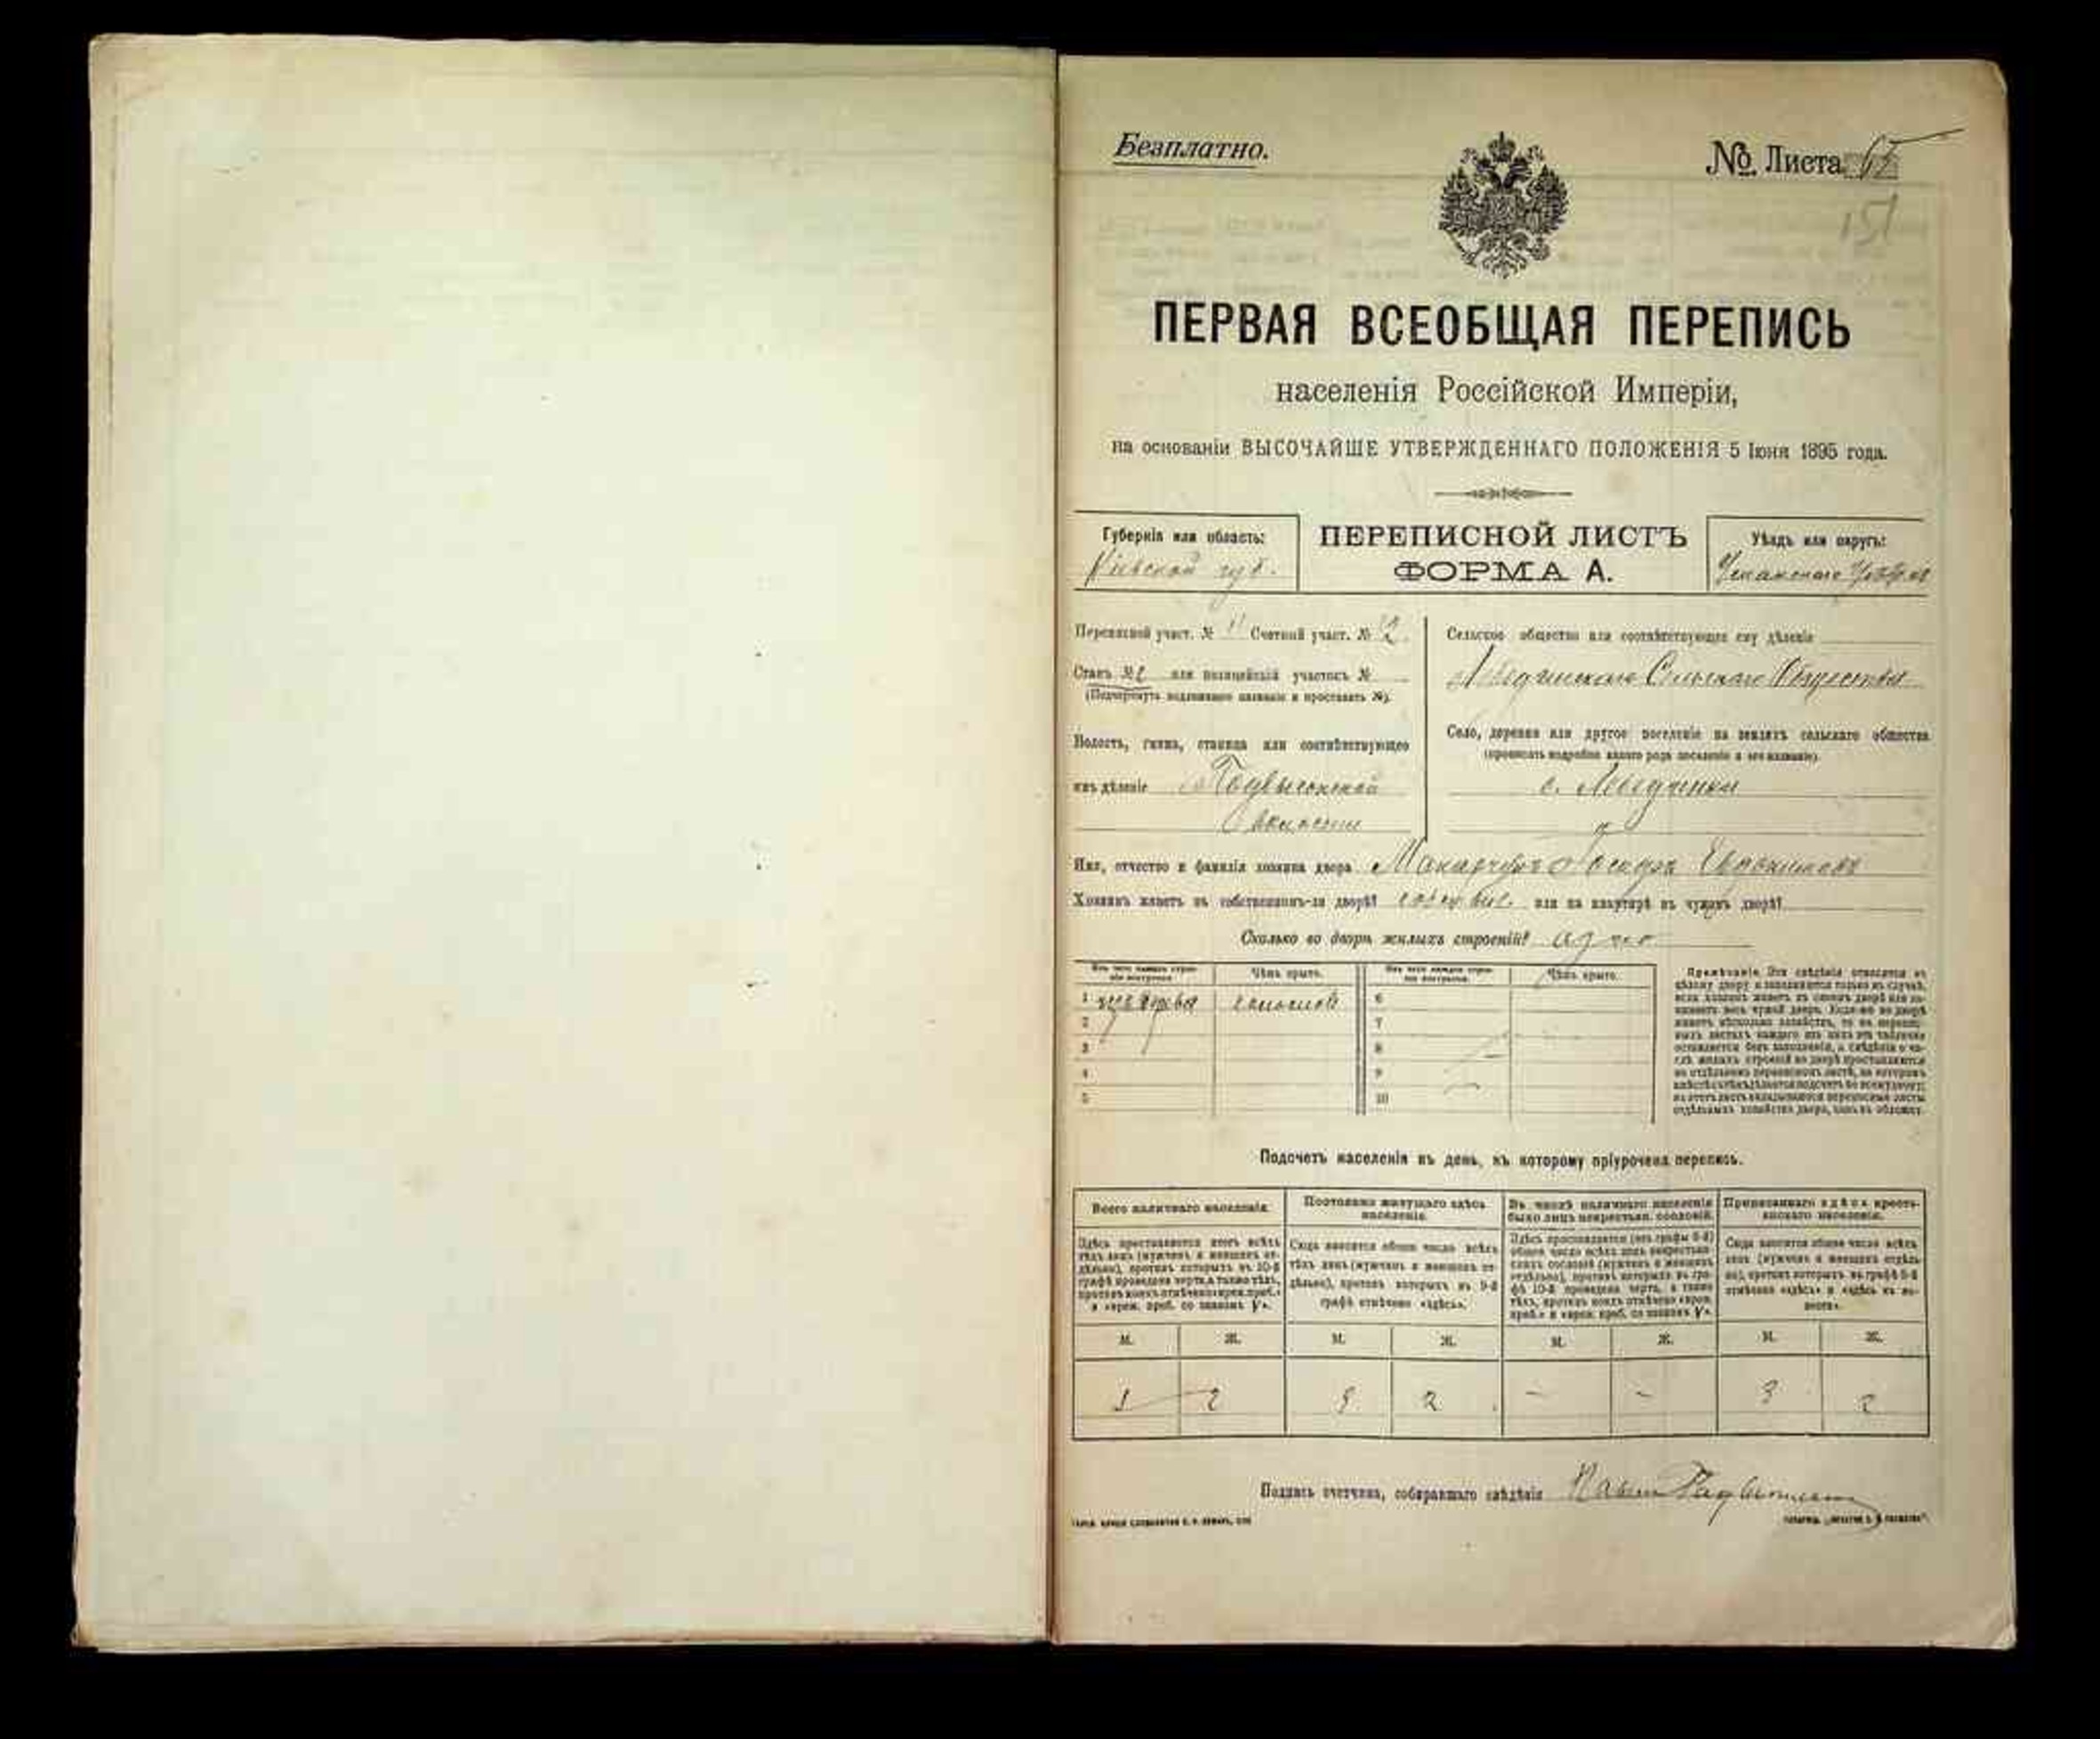 Безплатно.
№ Листа 65
151
ПЕРВАЯ ВСЕОБЩАЯ ПЕРЕПИСЬ
населенія Россійской Имперіи,
на основаніи ВЫСОЧАЙШЕ УТВЕРЖДЕННАГО ПОЛОЖЕНІЯ 5 Іюня 1895 года.
Губернія или область:
Кіевской губ.
ПЕРЕПИСНОЙ ЛИСТЪ
ФОРМА А.
Уѣздъ или округъ:
Уманскаго Уѣзда
Переписной участ. № 11 Счетный участ. № 2
Станъ № 2 или полицейскій участокъ №
(Подчеркнуть надлежащее названіе и проставить №).
Волость, гмина, станица или соотвѣтствующее
имъ дѣленіе Подвысоцкой
Волости
Сельское общество или соотвѣтствующее ему дѣленіе
Сельскаго Общества
Село, деревня или другое поселеніе на земляхъ сельскаго общества
(прописать подробно какого рода поселеніе и его названіе).
с.
Имя, отчество и фамилія хозяина двора Макарчукъ Евдокимовъ
Хозяинъ живетъ въ собственномъ-ли дворѣ? собствен. или на квартирѣ въ чужомъ дворѣ?
Сколько во дворѣ жилыхъ строеній? одно
Изъ чего каждое строеніе построено.
Чѣмъ крыто.
Изъ чего каждое строеніе построено.
Чѣмъ крыто.
1 изъ дерева соломой 6
2 7
3 8
4 9
5 10
Примѣчаніе. Эти свѣдѣнія относятся къ
цѣлому двору и заполняются только въ случаѣ,
если хозяинъ живетъ въ своемъ дворѣ или за-
нимаетъ весь чужой дворъ. Если-же во дворѣ
живетъ нѣсколько хозяйствъ, то на перепис-
ныхъ листахъ каждаго изъ нихъ эта табличка
оставляется безъ заполненія, а свѣдѣнія о чи-
слѣ жилыхъ строеній во дворѣ проставляются
на отдѣльномъ переписномъ листѣ, на которомъ
вмѣстѣ съ тѣмъ дѣлается подсчетъ по всему двору;
въ этотъ листъ вкладываются переписные листы
отдѣльныхъ хозяйствъ двора, какъ въ обложку.
Подсчетъ населенія въ день, къ которому пріурочена перепись.
Всего наличнаго населенія.
Постоянно живущаго здѣсь
населенія.
Въ числѣ наличнаго населенія
было лицъ некрестьян. сословій.
Приписаннаго здѣсь кресть-
янскаго населенія.
Здѣсь проставляется итогъ всѣхъ
тѣхъ лицъ (мужчинъ и женщинъ от-
дѣльно), противъ которыхъ въ 10-й
графѣ проведена черта, а также тѣхъ,
противъ коихъ отмѣчено «врем. преб.»
и «врем. преб. со знакомъ V».
Сюда вносится общее число всѣхъ
тѣхъ лицъ (мужчинъ и женщинъ от-
дѣльно), противъ которыхъ въ 9-й
графѣ отмѣчено «здѣсь».
Здѣсь проставляется (изъ графы 6-й)
общее число всѣхъ лицъ некрестьян-
скихъ сословій (мужчинъ и женщинъ
отдѣльно), противъ которыхъ въ гра-
фѣ 10-й проведена черта, а также
тѣхъ, противъ коихъ отмѣчено «врем.
преб.» и «врем. преб. со знакомъ V».
Сюда вносится общее число всѣхъ
лицъ (мужчинъ и женщинъ отдѣль-
но), противъ которыхъ въ графѣ 8-й
отмѣчено «здѣсь» и «здѣсь въ во-
лости».
М. Ж. М. Ж. М. Ж. М. Ж.
1 2 2 - - 3 2
Подпись счетчика, собиравшаго свѣдѣнія